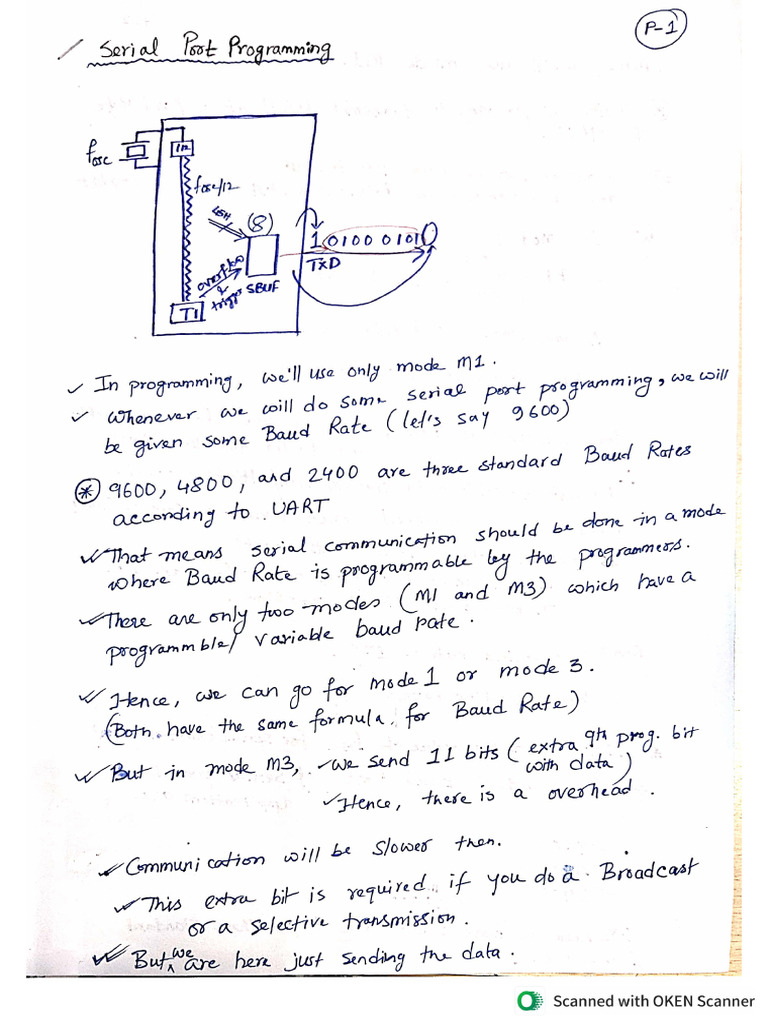 P-1
Serial Port Programming
fosc
1/12
fosc/12
45H
(8)
1 0100 0101 0
TXD
overflow
&
trigger
SBUF
T1
In programming, we'll use only mode M1.
Whenever we will do some serial port programming, we will
be given some Baud Rate (let's say 9600)
* 9600, 4800, and 2400 are three standard Baud Rates
according to UART
That means serial communication should be done in a mode
where Baud Rate is programmable by the programmers.
There are only two modes (M1 and M3) which have a
programmble/ variable baud rate.
Hence, we can go for mode 1 or mode 3.
(Both have the same formula for Baud Rate)
But in mode M3, we send 11 bits (extra 9th prog. bit
with data)
Hence, there is a overhead.
Communication will be slower then.
This extra bit is required if you do a Broadcast
or a selective transmission.
But we are here just sending the data.
Scanned with OKEN Scanner